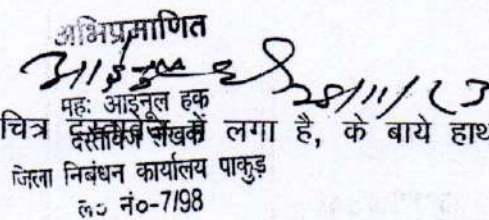 अभिप्रमाणित
28/11/23
महः आईनूल हक
चित्र दस्तावेज में लगा है, के बाये हाथ
दस्तावेज लेखक
जिला निबंधन कार्यालय पाकुड़
ल० नं०-7/98